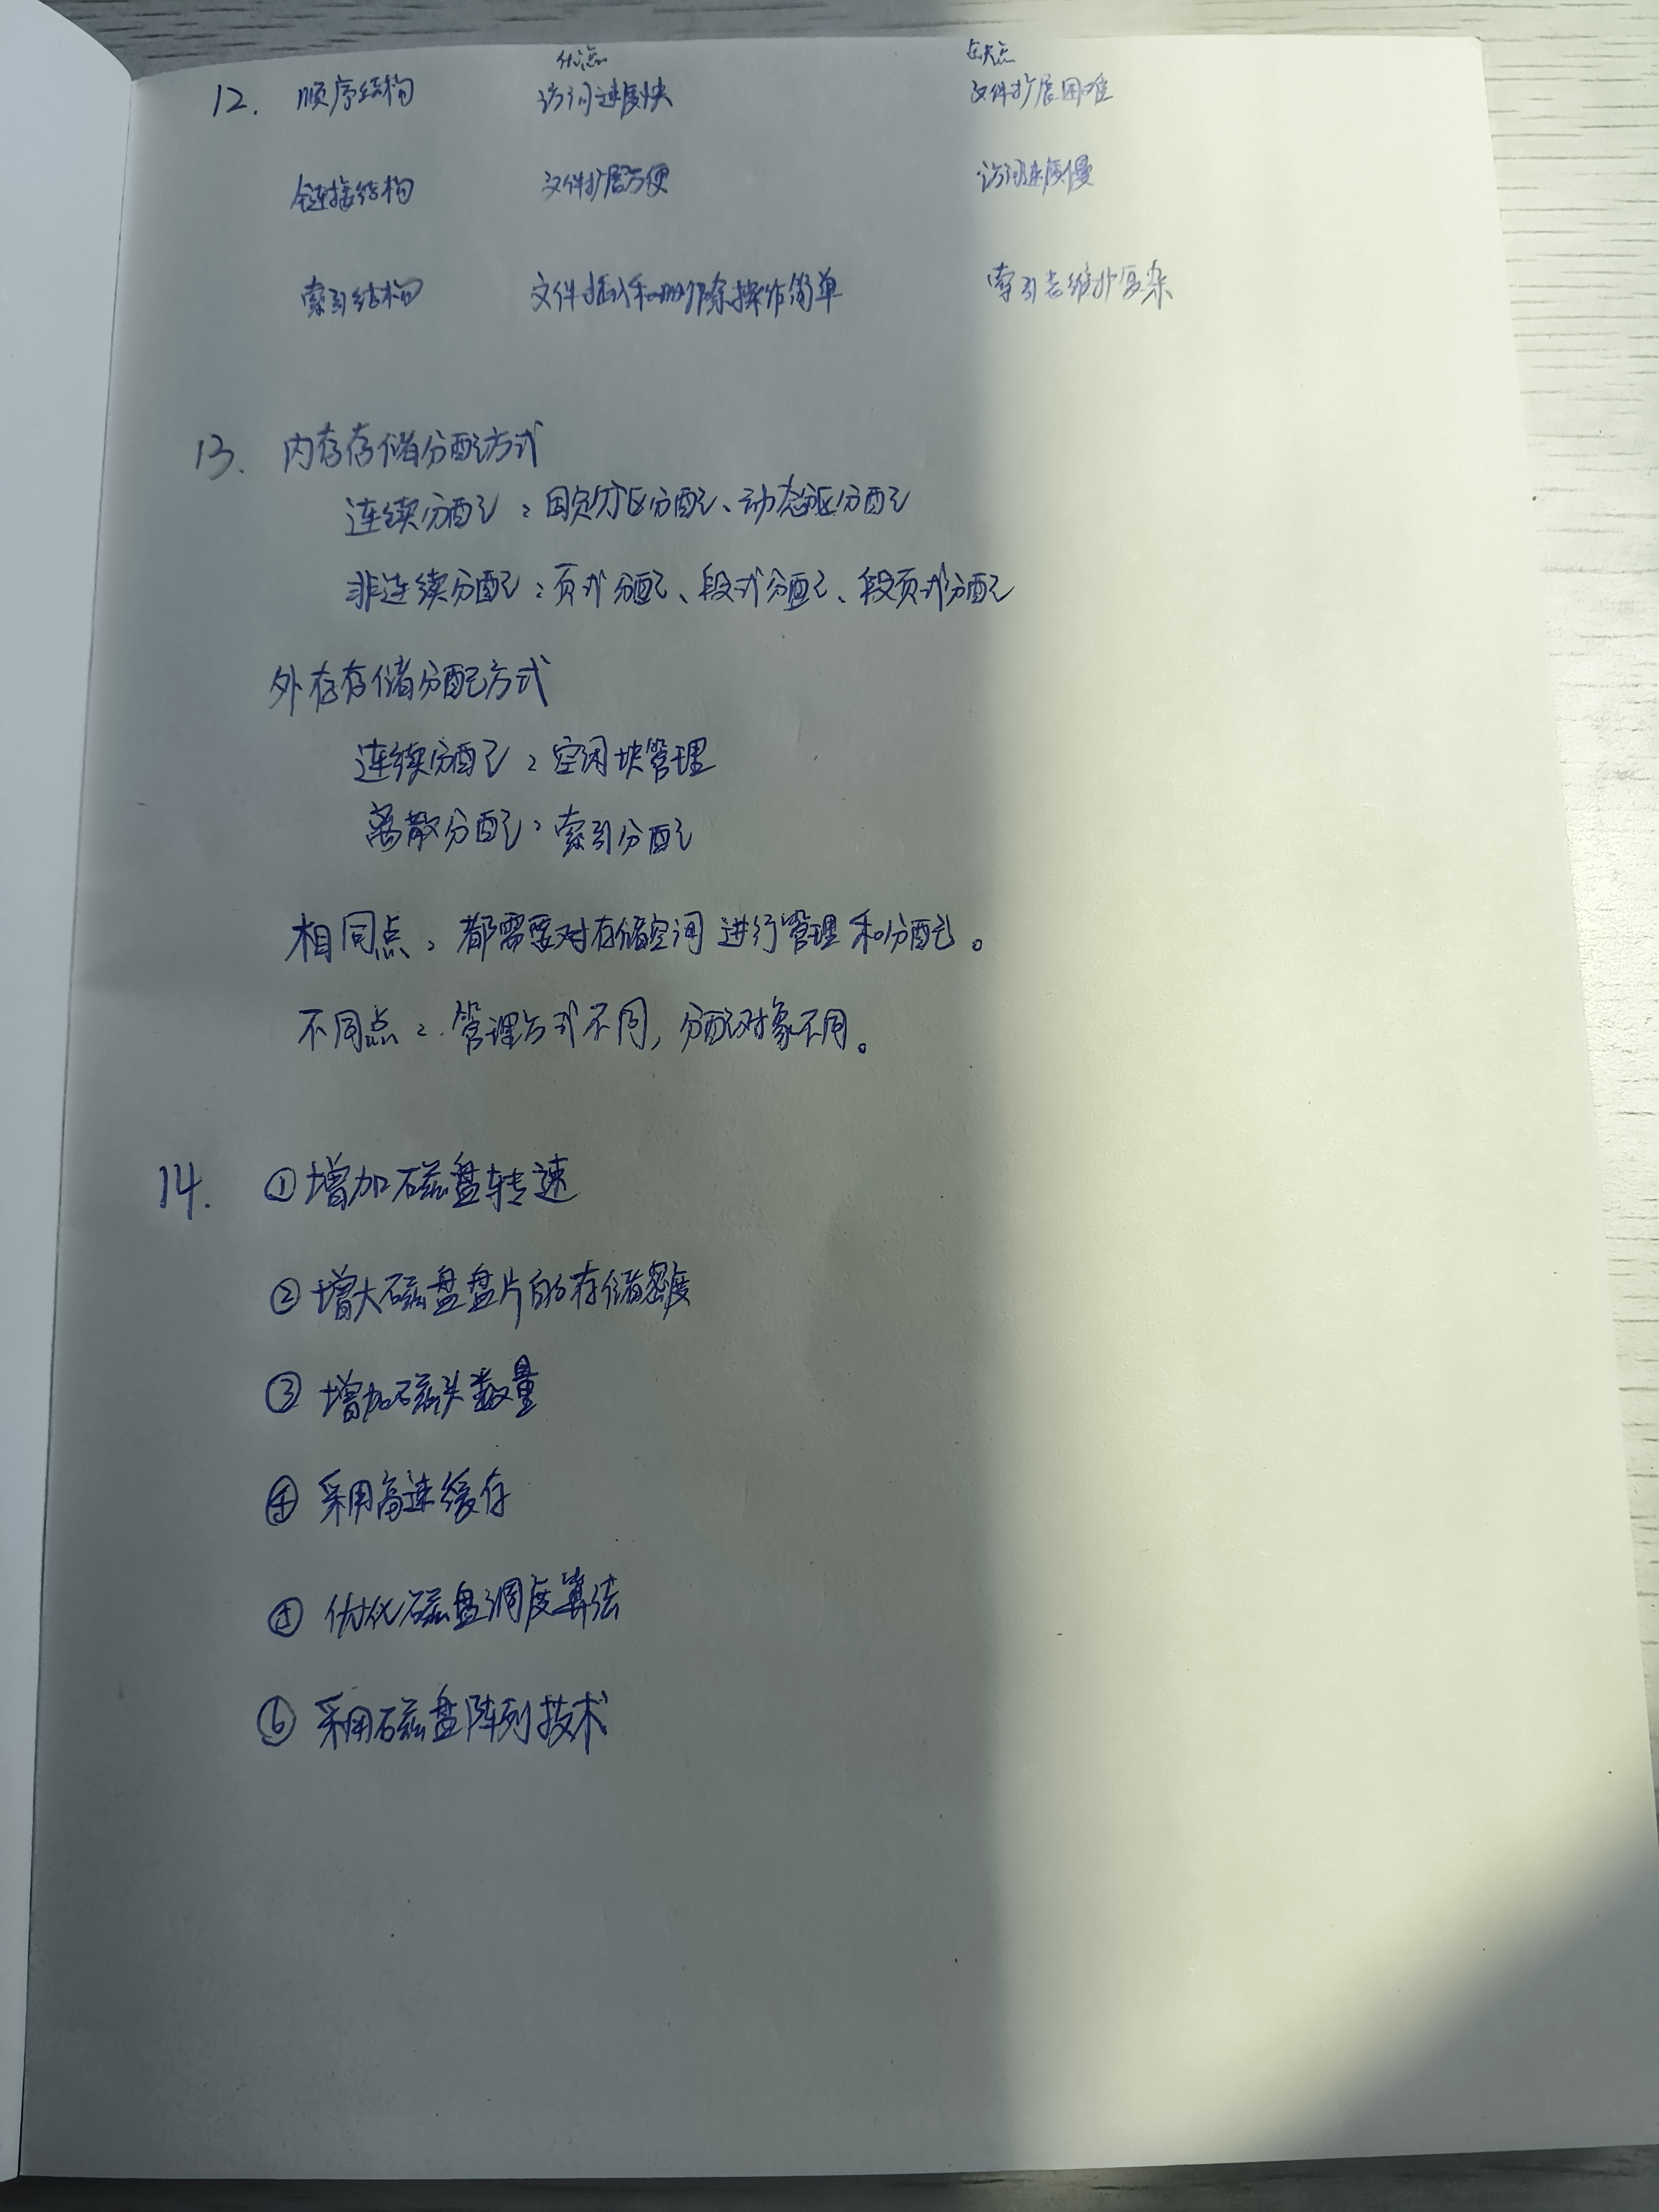 优点 缺点
12. 顺序结构 访问速度快 文件扩展困难
链接结构 文件扩展方便 访问速度慢
索引结构 文件插入和删除操作简单 索引表维护复杂
13. 内存存储分配方式
连续分配：固定分区分配、动态分区分配
非连续分配：页式分配、段式分配、段页式分配
外存存储分配方式
连续分配：空闲块管理
离散分配：索引分配
相同点：都需要对存储空间进行管理和分配。
不同点：管理方式不同，分配对象不同。
14. ①增加磁盘转速
②增大磁盘盘片的存储密度
③增加磁头数量
④采用高速缓存
⑤优化磁盘调度算法
⑥采用磁盘阵列技术